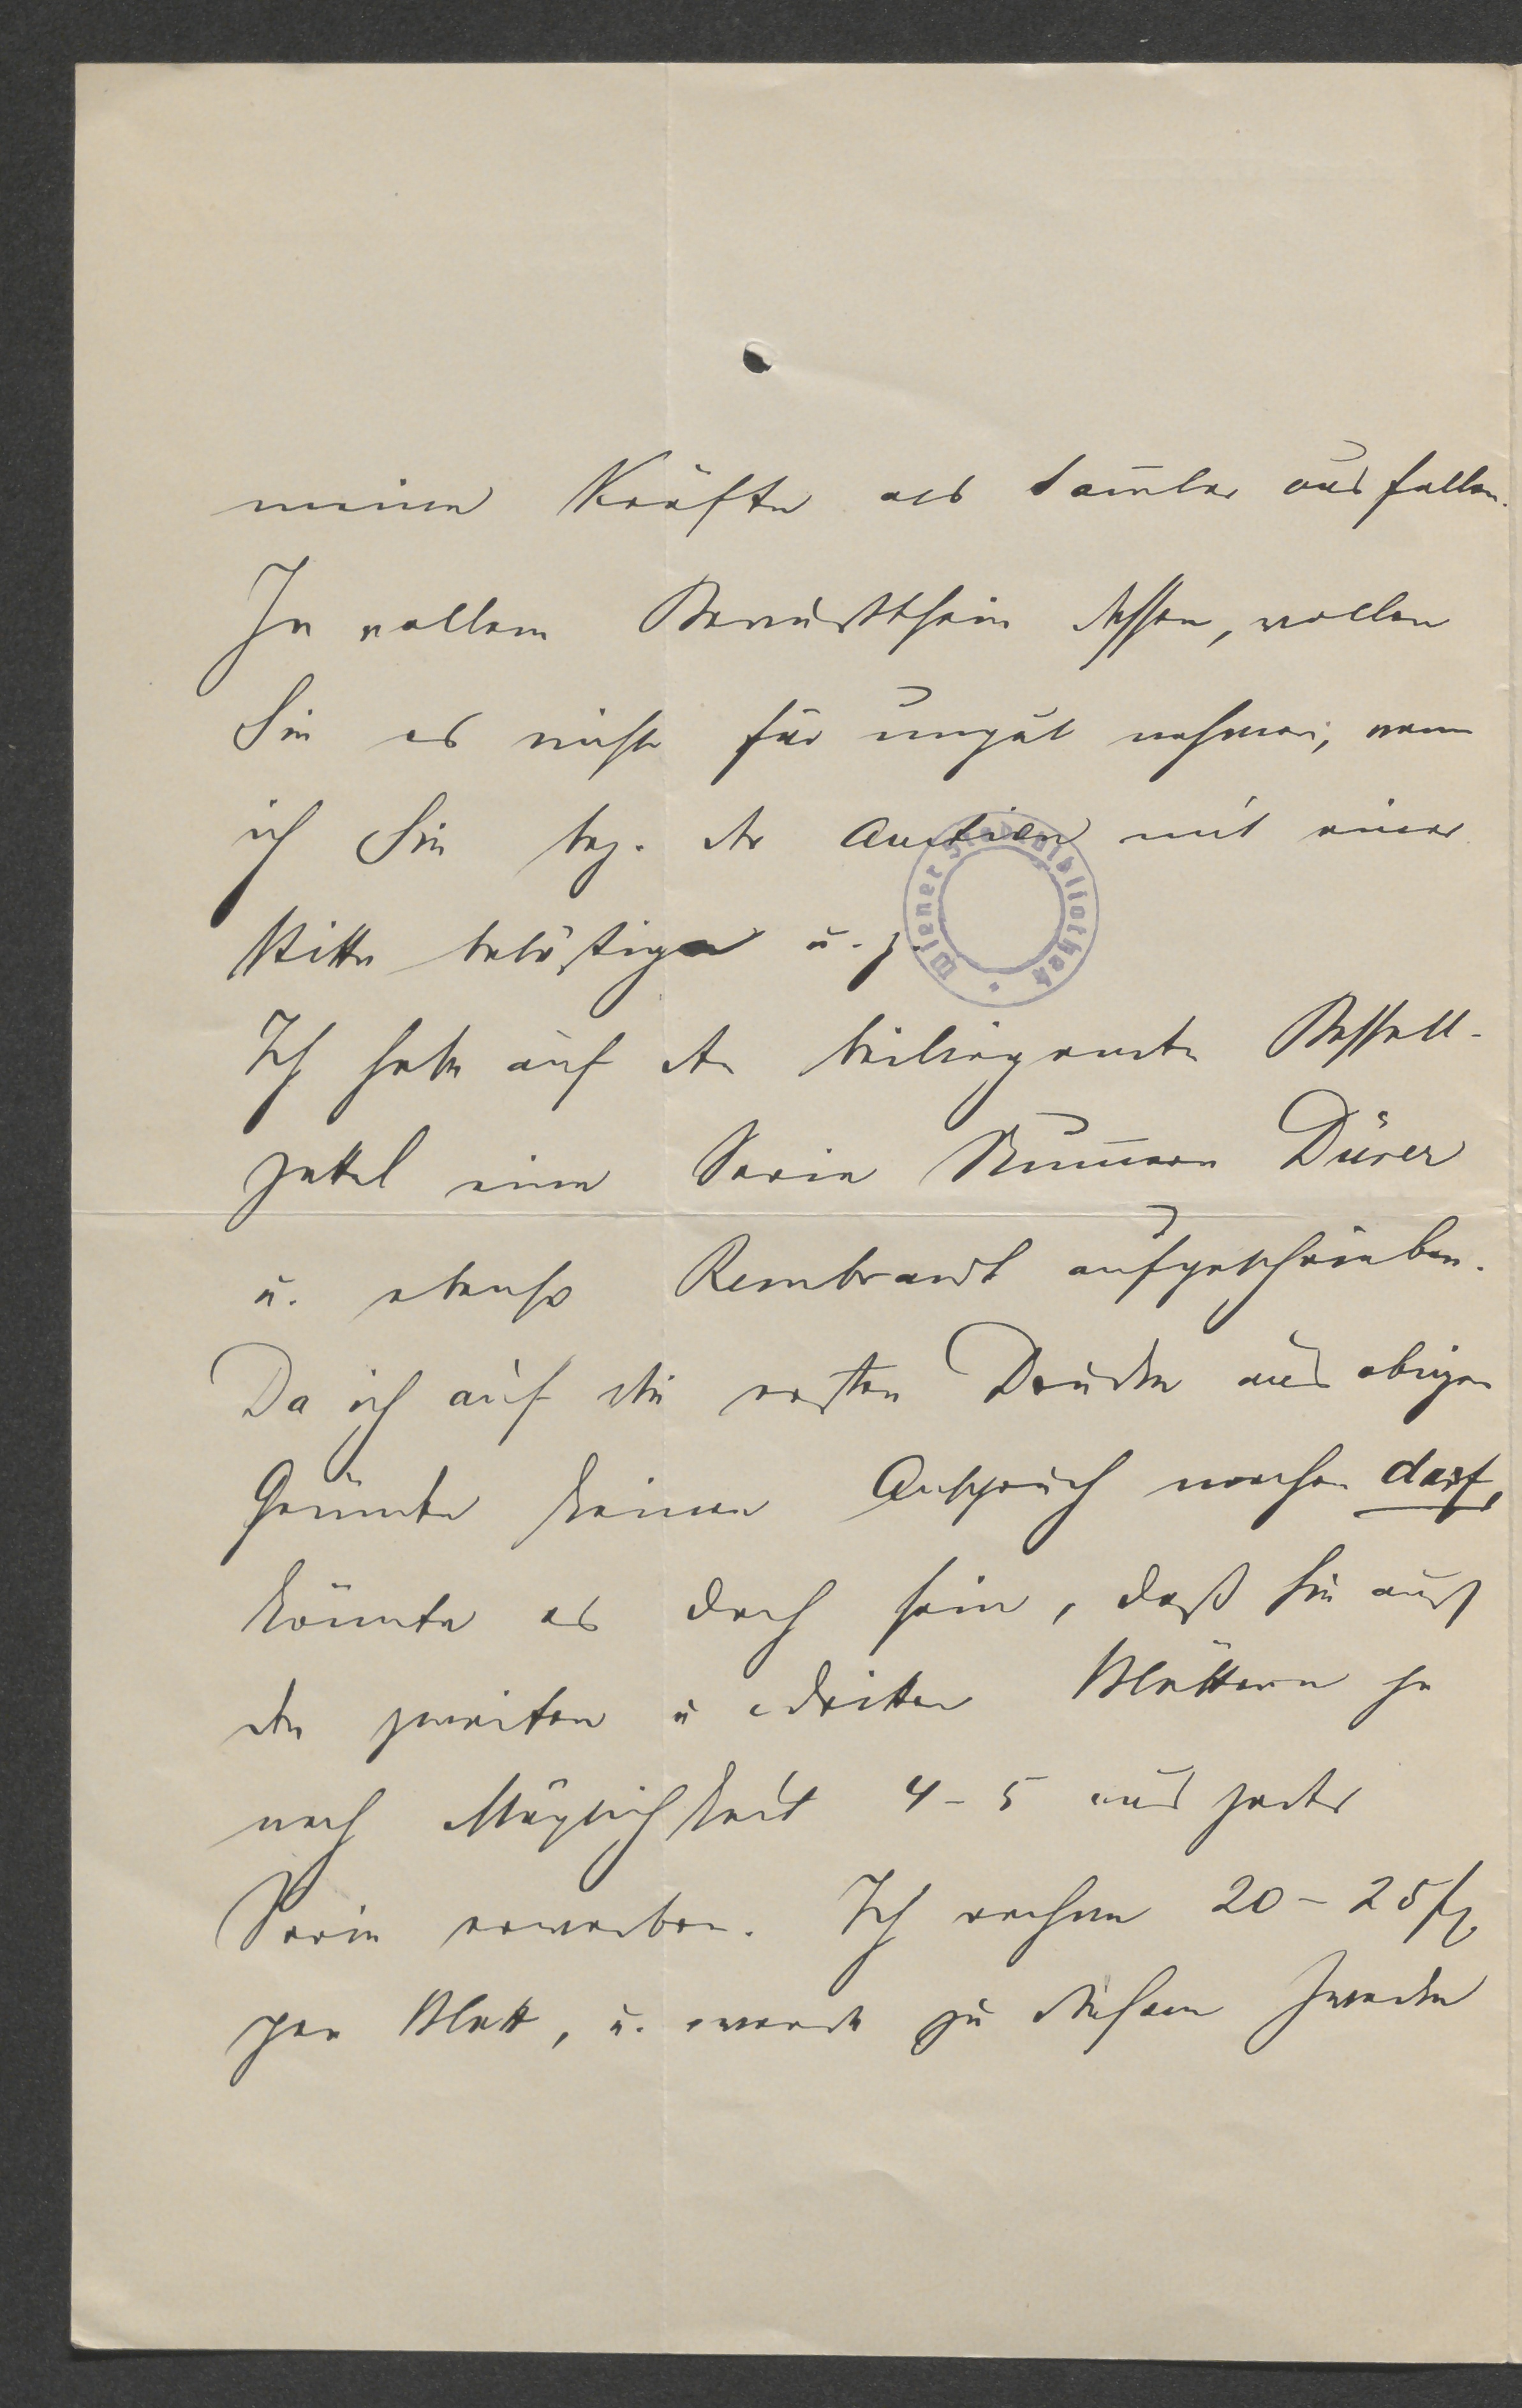 meiner Kräfte als Sam̅ler ausfallen.
In vollem Bewußtsein dessen, wollen
Sie es nicht für ungut nehmen, wenn
ich Sie bez. der Auction mit einer
Bitte belästige u. z.
Wiener Stadtbibliothek
Ich habe auf dem beiliegenden Bestell-
zettel eine Serie Num̅ern Dürer
u. ebenso Rembrandt aufgeschrieben.
Da ich auf die ersten Drucke aus obigen
Gründen keinen Anspruch machen darf,
könnte es doch sein, daß Sie aus
den zweiten u dritten Blättern je
nach Möglichkeit 4–5 aus jeder
Serie erwerben. Ich rechne 20–25 fl
per Blatt, u. werde zu diesem Zwecke